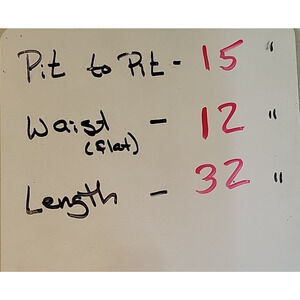 Pit to Pit - 15 "
Waist - 12 "
(flat)
Length - 32 "